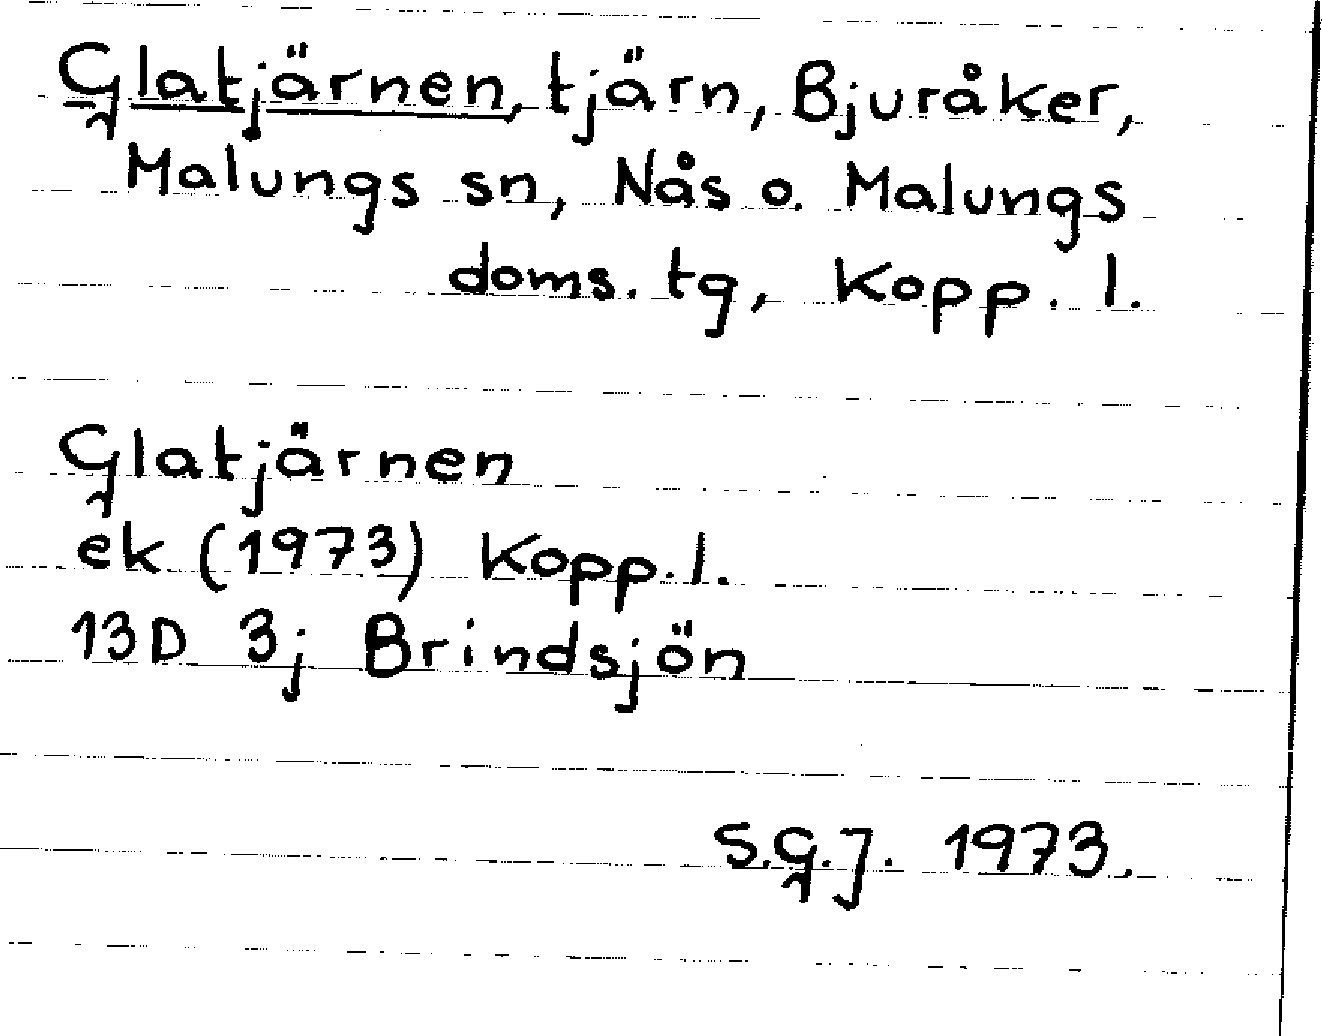 Glatjärnen, tjärn, Bjuråker,
Malungs sn, Nås o. Malungs
doms. tg, Kopp. l.
Glatjärnen
ek (1973) Kopp. l.
13D 3j Brindsjön
S.G.J. 1973.